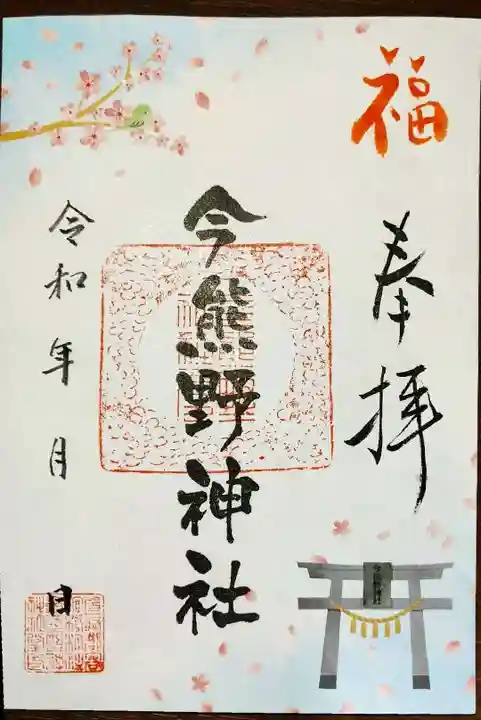 福
奉拝
今熊野神社
令和年月日